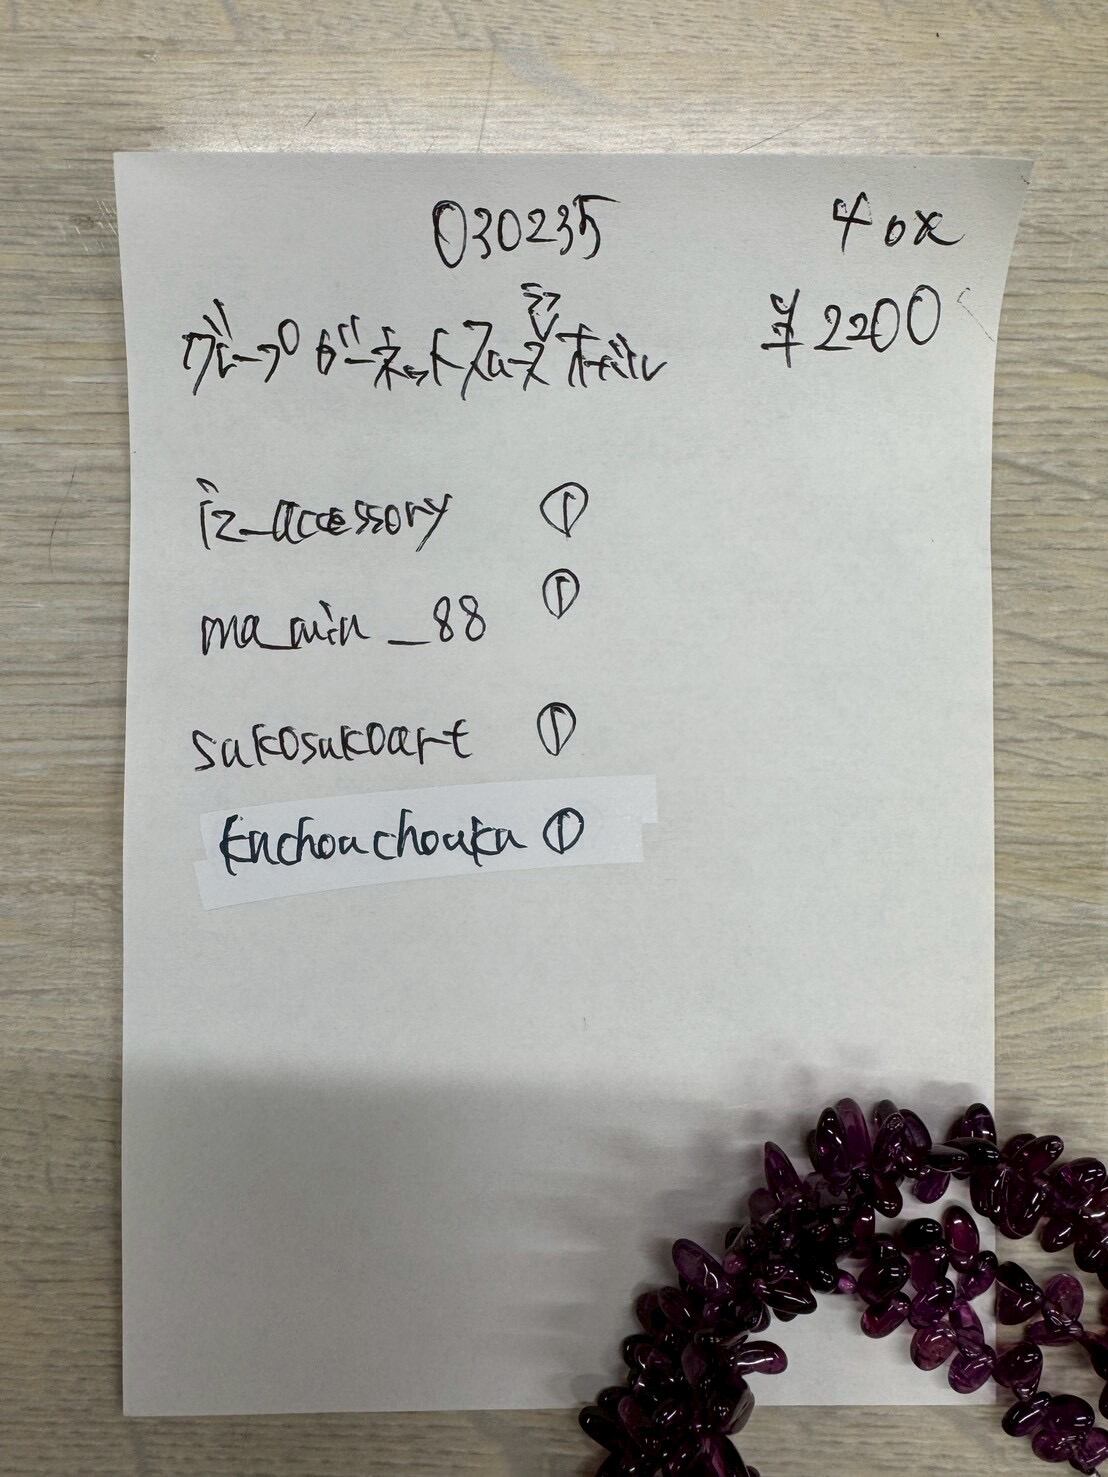 030235 40x
グレープガーネットスムーズ ¥2200
iz_accessory ①
ma_min_88 ①
sakosakoart ①
kachouchouka ①